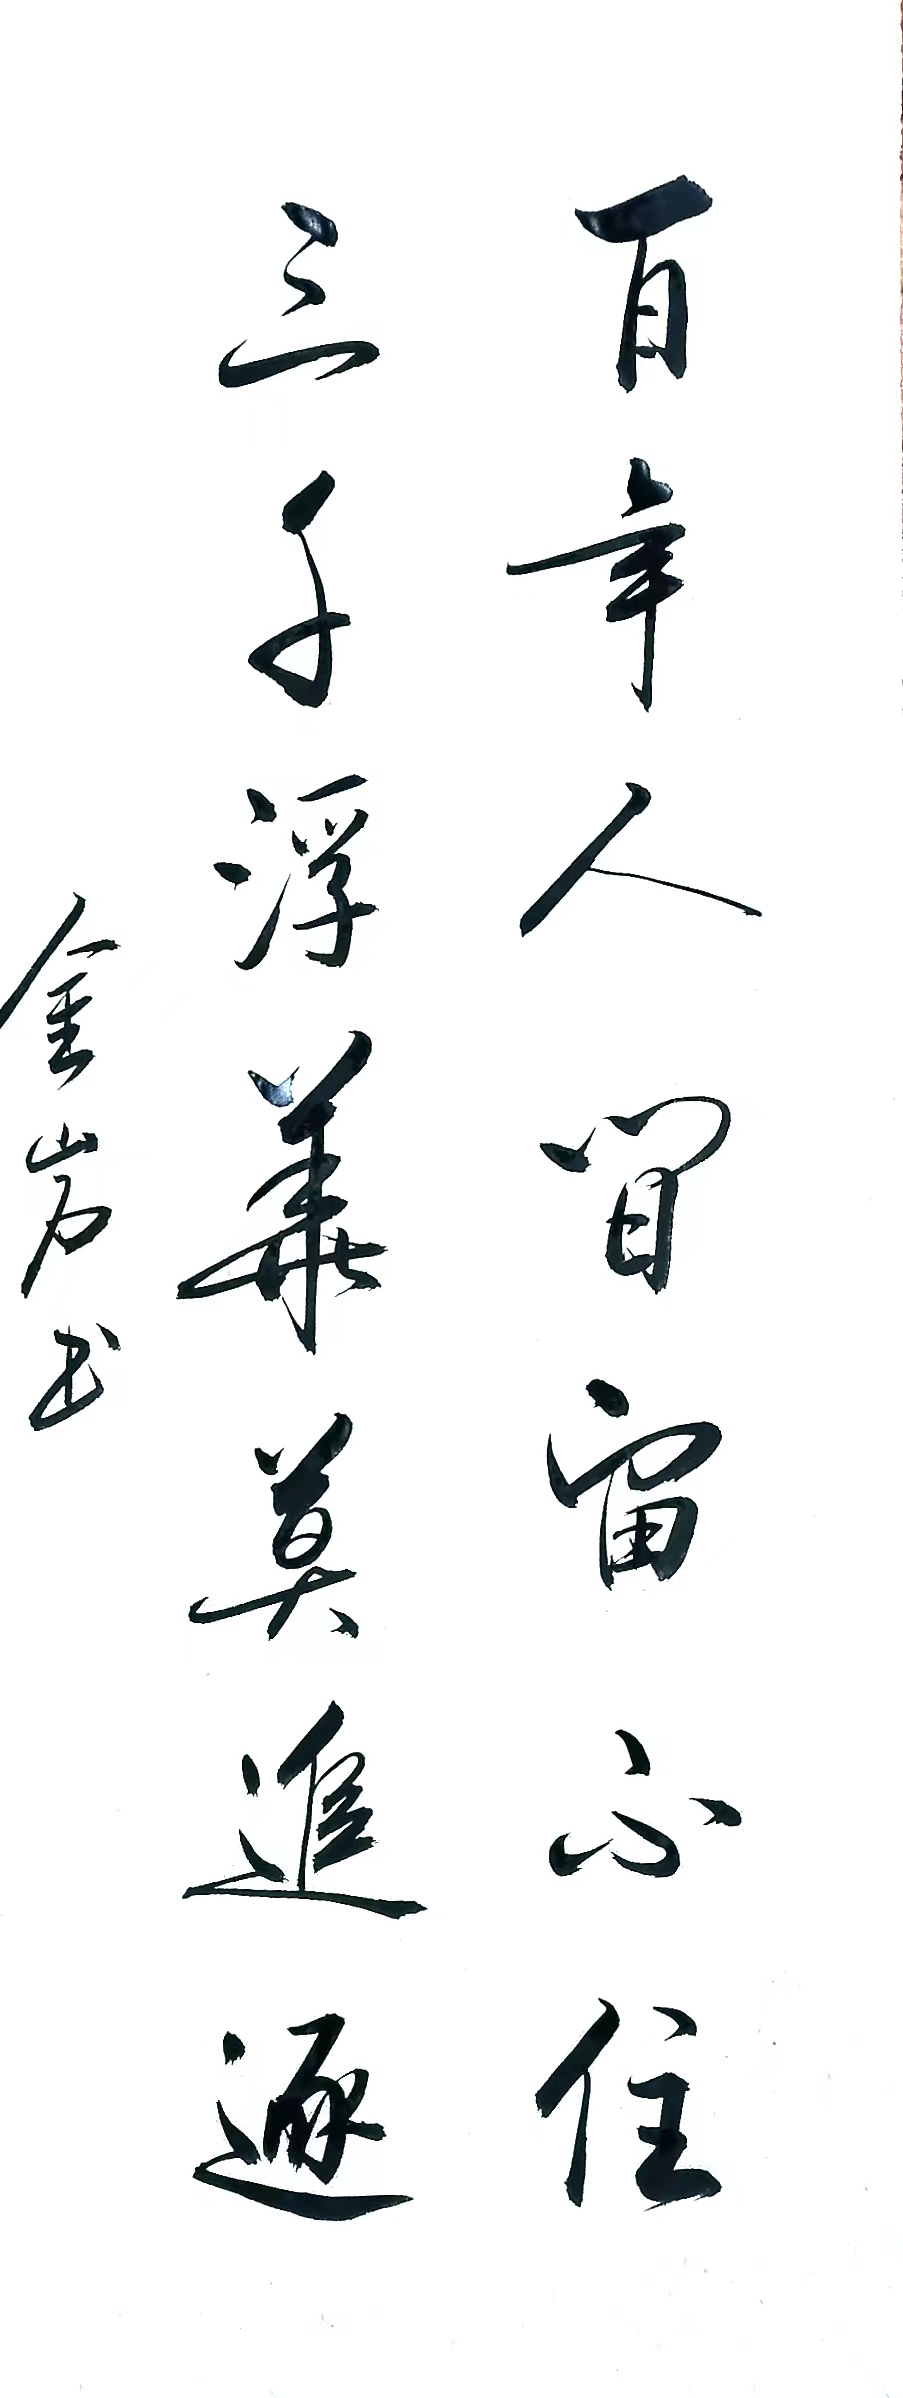 百年人間留不住
三千浮華莫追逐
金岩书